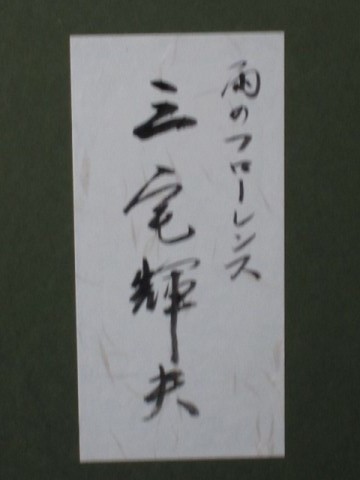 雨のフローレンス
三宅輝夫